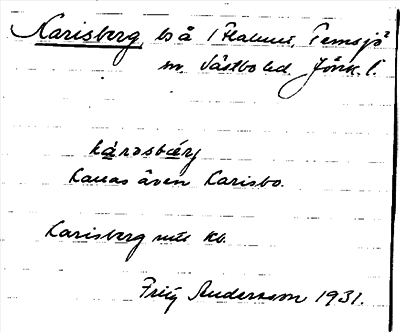 Karisberg, bå i Halmst, Femsjö
sn. Västbo hd. Jönk. l.
kárəsbærj
Kallas även Karisbo.
Karisberg utt. Kb.
Fritz Andersson 1931.